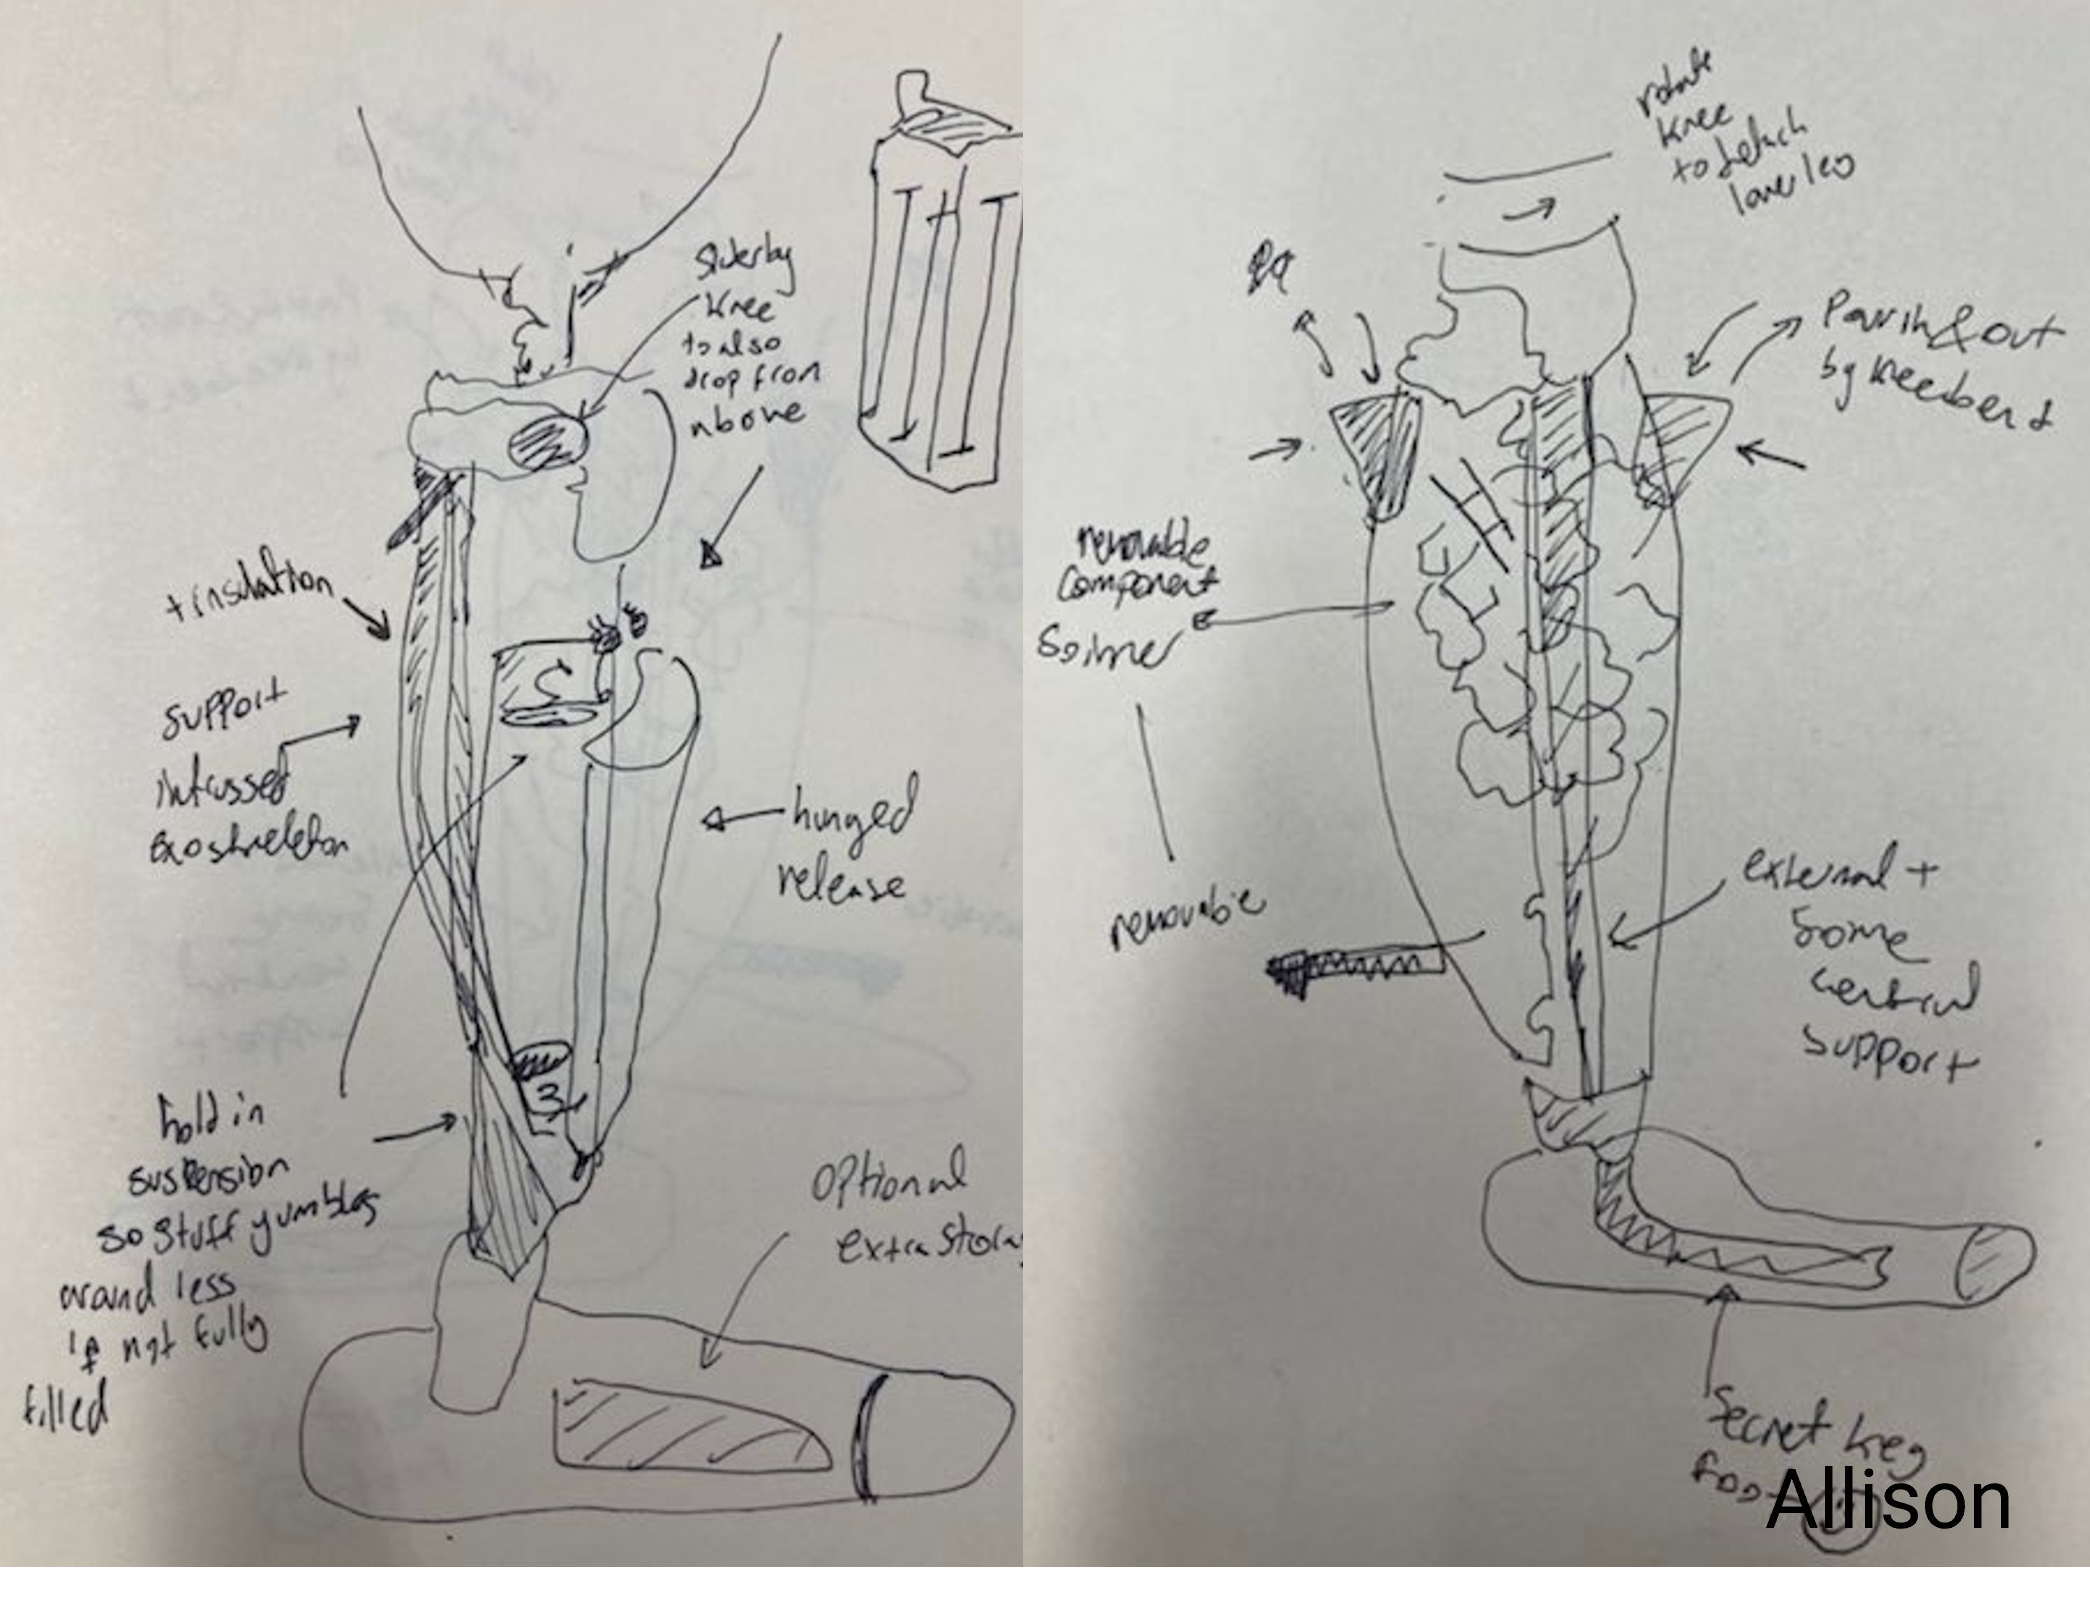 knee
to also
drop from
above
+ insulation
support
intrussed
exoskeleton
hinged
release
hold in
suspension
so stuff yumbles
around less
if not fully
filled
optional
extra stora
3
rotate
knee
to detach
lower leg
Pour in & out
by knee bend
removable
component
removable
external +
some
central
support
Secret keg
foot
Allison